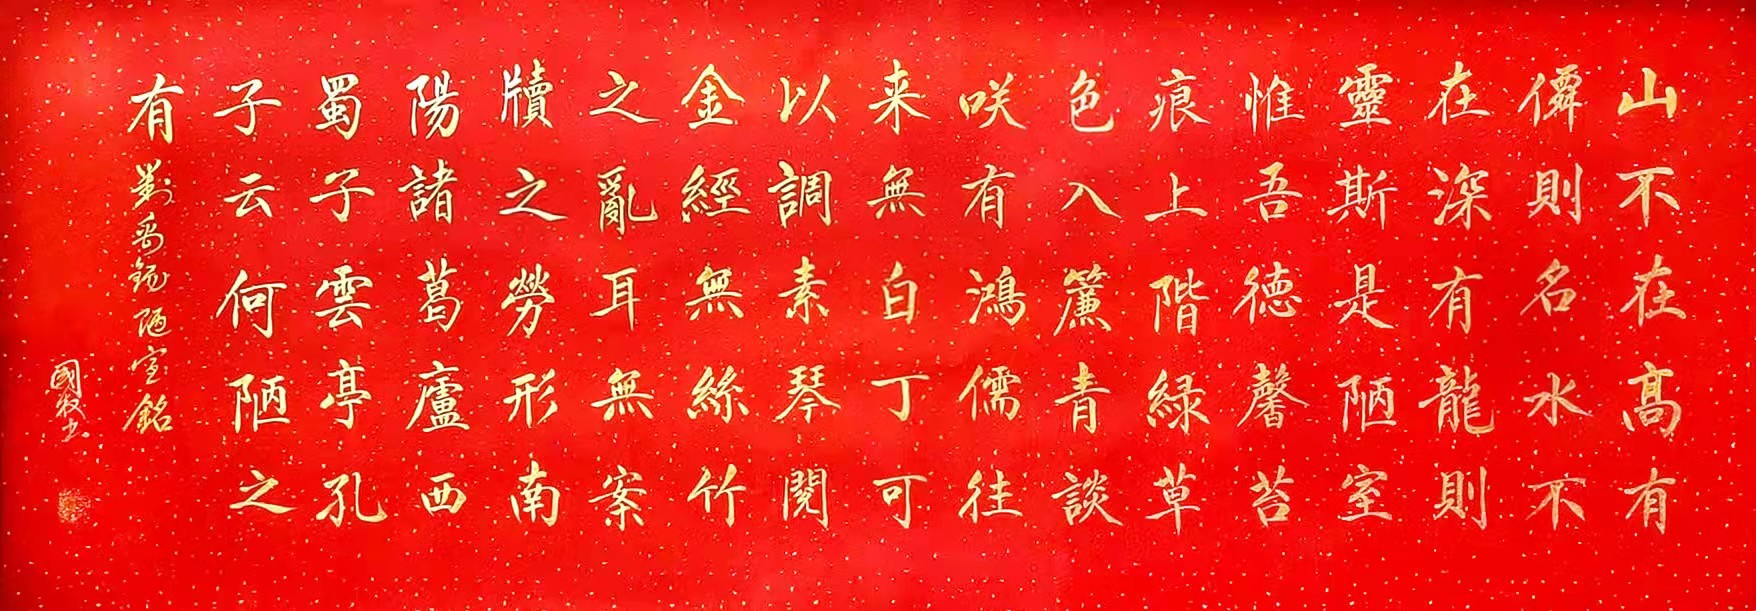 山不在高有
僊則名水不
在深有龍則
靈斯是陋室
惟吾德馨苔
痕上階緑草
色入簾青談
咲有鴻儒往
来無白丁可
以調素琴閱
金經無絲竹
之亂耳無案
牘之勞形南
陽諸葛廬西
蜀子雲亭孔
子云何陋之
有
劉禹錫陋室銘
國